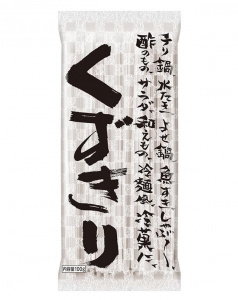 くずきり
チリ鍋、水たき、よせ鍋、魚すき、しゃぶしゃぶ、
酢のもの、サラダ、和えもの、冷麺風、冷菓に、
内容量100g